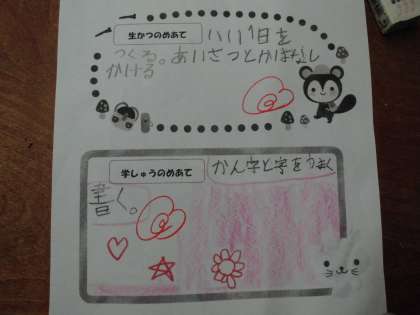 生かつのめあて
いい1日を
つくる。あいさつとかはなし
かける
学しゅうのめあて
かん字と字をうまく
書く。